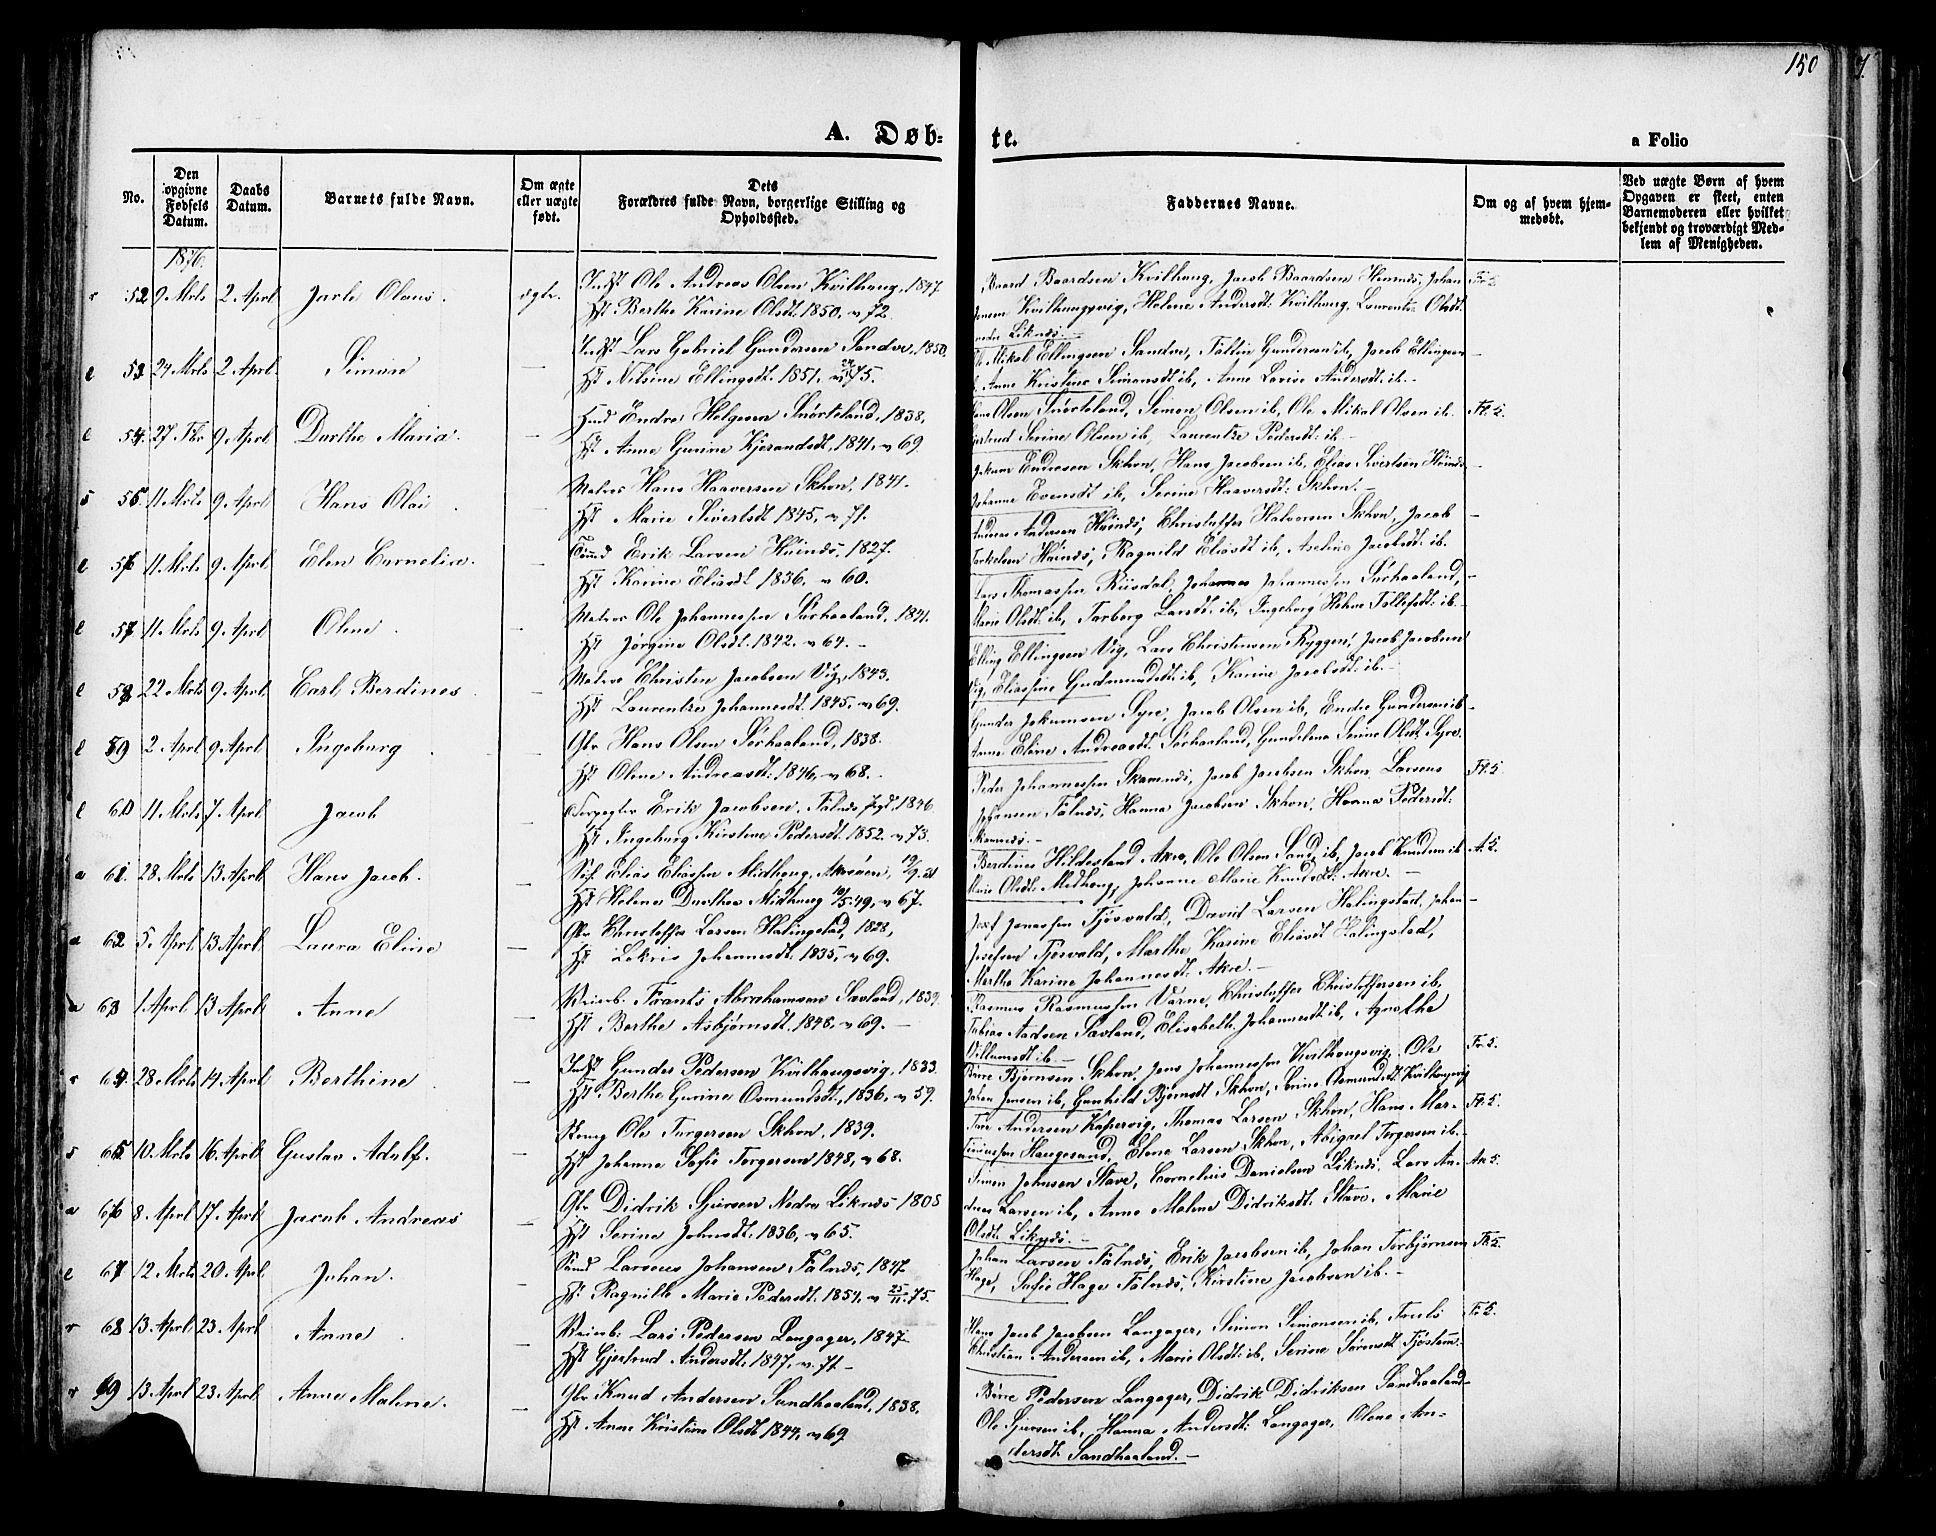 150
A. Døb=
te.
a Folio
No.
Den opgivne Fødsels Datum.
Daabs Datum.
Barnets fulde Navn.
Om ægte eller uægte født.
Dets Forældres fulde Navn, borgerlige Stilling og Opholdssted.
Faddernes Navne.
Om og af hvem hjemmedøbt.
Ved uægte Børn af hvem Opgaven er skeet, enten Barnemoderen eller hvilket bekjendt og troværdigt Medlem af Menigheden.
1876.
52 9 Mrts 2 Aprl Jarle Olaus. ægte. Indst Ole Andreas Olsen Kvilhaug, 1847.
Hst Berthe Karine Olsdt. 1850, v 72.
Baard Baardsen Kvilhaug, Jacob Baardsen Hinnds, Johan
Jensen Kvilhaugsvig, Helene Andersdt: Kvilhaug, Laurentze Olsdt.
nedre Liknæs.
53 27 Mrts 2 Aprl Simon — Indst Lars Gabriel Gundersen Sandve, 1850.
Hst Nilsine Ellingsdt. 1851, v 75.
Mikal Ellingsen Sandve, Tollin Gundersen ib, Jacob Ellingsen
Anne Kristine Simonsdt ib, Anne Larine Andersdt. ib.
54 27 Fbr 9 Aprl Dorthe Maria. — Hmd Endre Helgesen Snørteland, 1838,
Hst Anne Gurine Kjerandsdt, 1841, v 69
Olsen Snørteland, Simon Olsen ib, Ole Mikal Olsen ib.
Gjertrud Serine Olsen ib, Laurentze Pedersdt: ib.
55 11 Mrts 9 Aprl Hans Olai — Matros Hans Haaversen Skhvn, 1841.
Hst Marie Sivertsdt 1845, v 71.
Endresen Skhvn, Hans Jacobsen ib, Elias Sivertsen
Johanne Evensdt ib, Serine Haaversdt: Skhvn.
56 11 Mrts 9 Aprl Elen Cornelia. — Erik Larsen 1827.
Hst Karine Eliasdt 1836, v 60.
Andreas Andersen Christoffer Halvorsen Skhvn, Jacob
Torkelsen Ragnild Eliasdt ib, Aseline Jacobsdt. ib.
57 11 Mrts 9 Aprl Oline — Matros Ole Johannessen Sørhaaland, 1841.
Hst Jørgine Olsdt. 1842. v 64.
Lars Thomassen Riisdal, Johannes Johannessen Sørhaaland,
Marie Olsdt. ib, Torborg Larsdt. ib, Ingeborg Helene Tollefsdt: ib.
58 22 Mrts 9 Aprl Carl Berdines — Matros Christen Jacobsen Vig, 1843.
Hst Laurentze Johannesdt. 1845, v 69.
Elling Ellingsen Vig, Lars Christensen Ryggen, Jacob Jacobsen
Vig, Eliassine Gudmundsdt ib, Karine Jacobsdt. ib.
59 2 Aprl 9 Aprl Ingeborg — Gbr Hans Olsen Sørhaaland, 1838.
Hst Oline Andreasdt: 1846, v 68.
Gunder Jokumsen Syre, Jacob Olsen ib, Endre Gundersen ib
Anne Eline Andreasdt. Sørhaaland, Gundelena Serine Olsdt. Syre.
60 11 Mrts 7 Aprl Jacob — Erik Jacobsen, Falnæs 1846
Hst Ingeborg Kirstine Pedersdt. 1852. v 73.
Peder Johannessen Jacob Jacobsen Skhvn, Larsens
Johansen Falnæs, Hanna Jacobsen Skhvn, Hanna Pedersdt:
61. 28 Mrts 13 Aprl Hans Jacob. — Elias Eliassen Midhaug, Akrøen,
Hst Helene Dorthea Midhaug 10/5 49, v 67.
Berdines Hildesland Akre, Ole Olsen Sand, ib, Jacob Knudsen ib
Marie Olsdt: Medhaug, Johanne Marie Knudsdt: Akre.
62 5 Aprl 13 Aprl Laura Eline — Gbr Christoffer Larsen Halingstad, 1828,
Hst Johannesdt. 1835, v 69.
Josef Jonassen Tjøsvold, David Larsen Halingstad, Johan
Josefsen Tjøsvold, Marthe Karine Eliasdt Halingstad,
Marthe Karine Johannesdt: Akre.
63 1 Aprl 13 Aprl Anne — Frants Abrahamsen Savland, 1839.
Hst Berthe Asbjørnsdt. 1848, v 69.
Rasmus Rasmussen Varne, Christoffer Christoffersen ib,
Tobias Aadsen Savland, Elisabeth Johannesdt ib, Agnethe
Villumsdt ib.
64 28 Mrts 14 Aprl Berthine — Indst Gunder Pedersen Kvilhaugsvig, 1833.
Hst Berthe Gurine Osmundsdt, 1836, v 59.
Børre Bjørnsen Skhvn, Jens Johannessen Kvilhaugsvig, Ole
Johan Jensen ib, Gunhild Bjørnsdt Skhvn, Serine Osmundsdt. Kvilhaugsvig
65 10 Mrts 16 Aprl Gustav Adolf. — Ole Torgersen Skhvn, 1839.
Hst Johanne Sofie Torgersen 1848, v 68.
Andersen Kopervig, Thomas Larsen Skhvn, Hans Mar-
Haugesund, Elene Larsen Skhvn, Abigael Torgersen ib.
66 8 Aprl 17 Aprl Jacob Andreas — Gbr Didrik Sjursen Nedre Liknæs 1808
Hst Serine Johnsdt. 1836, v 65.
Simon Johnsen Stave, Cornelius Danielsen Liknæs, Lars An-
dreas Larsen ib, Anne Malene Didriksdt: Stave, Marie
Olsdt. Liknæs.
67 12 Mrts 20 Aprl Johan. — Larsens Johansen Falnæs, 1847.
Hst. Ragnille Marie Pedersdt. 1854, v 25/11 75.
Johan Larsen Falnæs, Erik Jacobsen ib, Johan Torbjørnsen
Hage, Sofie Hage Falnæs, Kirstine Jacobsen ib.
68 13 Aprl 23 Aprl Anne — Lars Pedersen Langager, 1847.
Hst Gjertrud Andersdt. 1847, v. 71
Hans Jacob Jacobsen Langager, Simon Simonsen ib, Truls
Christian Andersen ib, Marie Olsdt: ib, Serine Sørensdt
69 13 Aprl 23 Aprl Anne Malene. — Gbr Knud Andersen Sandhaaland, 1838,
Hst. Anne Kristine Olsdt 1844, v 69
Børre Pedersen Langager, Didrik Didriksen Sandhaaland
Ole Sjursen ib, Hanna Andersdt: Langager, Oline An-
dersdt. Sandhaaland.